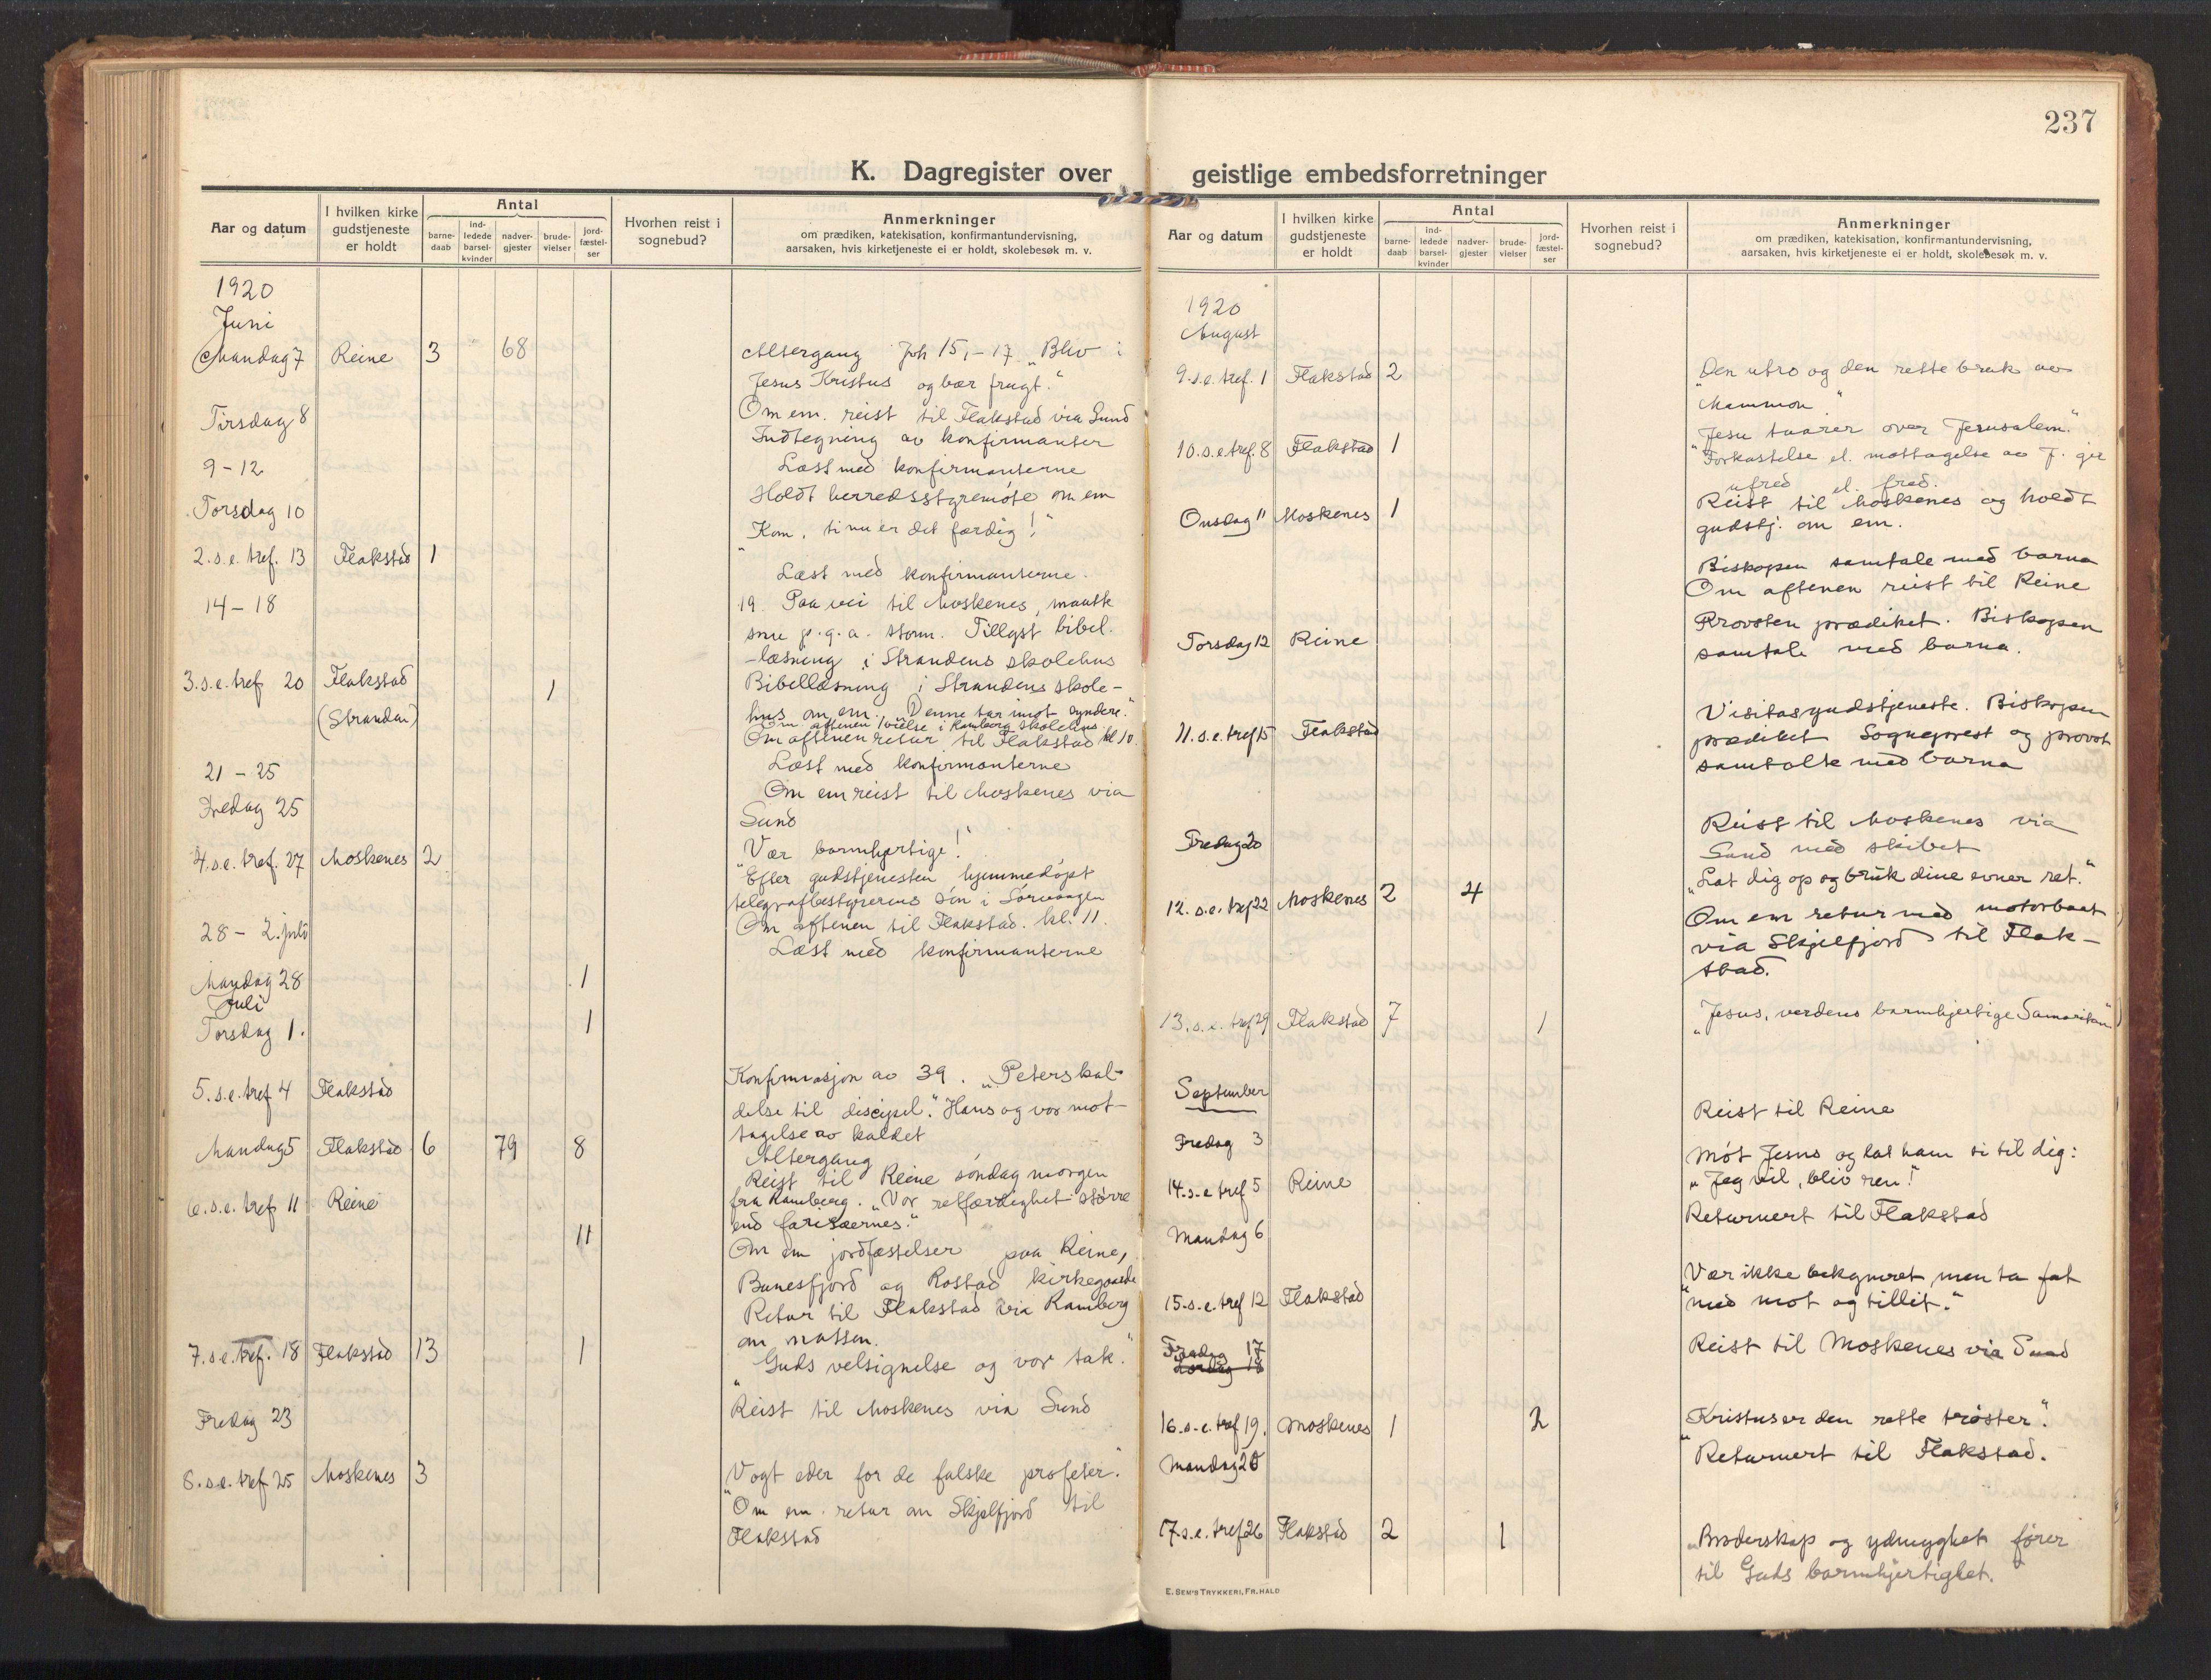 237
K. Dagregister over geistlige embedsforretninger
Aar og datum
I hvilken kirke gudstjeneste er holdt
Antal
barne-daab
ind-ledede barsel-kvinder
nadver-gjester
brude-vielser
jord-fæstel-ser
Hvorhen reist i sognebud?
Anmerkninger
om prædiken, katekisation, konfirmantundervisning,
aarsaken, hvis kirketjeneste ei er holdt, skolebesøk m. v.
1920
Juni
Mandag 7 Reine 3 68 Altergang Joh 15, 1-17. "Bliv i
Jesus Kristus og bær frugt."
Tirsdag 8 Om em. reist til Flakstad via Sund
Indtegning av konfirmanter
9-12 Læst med konfirmanterne
Torsdag 10 Holdt herredsstyremøte om em
2. s. e. tref. 13 Flakstad 1 "Kom, ti nu er det færdig!"
14-18 Læst med konfirmanterne.
19. Paa vei til Moskenes, maatte
snu p. g. a. storm. Tillyst bibel-
-læsning i Strandens skolehus
3. s. e. tref 20 Flakstad 1 Bibellæsning i Strandens skole-
(Stranden) hus om em. "Denne tar imot syndere."
Om aftenen 1 vielse i Ramberg skolehus.
Om aftenen retur til Flakstad kl 10.
21-25 Læst med konfirmanterne
Fredag 25 Om em reist til Moskenes via
Sund
4. s. e. tref. 27 Moskenes 2 "Vær barmhjertige!"
Efter gudstjenesten hjemmedøpt
telegrafbestyrerens søn i Sørvaagen
Om aftenen til Flakstad. kl. 11.
28 - 2. juli Læst med konfirmanterne
Mandag 28 1
Juli
Torsdag 1. 1
5. s. e. tref 4 Flakstad Konfirmasjon av 39. "Peters kal-
delse til discipel." Hans og vor mot-
tagelse av kaldet
Mandag 5 Flakstad 6 79 8 Altergang
6. s. e. tref 11 Reine 11 Reist til Reine søndag morgen
fra Ramberg. "Vor retfærdighet større
end farisæernes."
Om em jordfæstelser paa Reine,
Bunesfjord og Rostad kirkegaarde
Retur til Flakstad via Ramberg
om natten.
7. s. e. tref. 18 Flakstad 13 1 "Guds velsignelse og vor tak."
Fredag 23 Reist til Moskenes via Sund
8. s. e. tref 25 Moskenes 3 "Vogt eder for de falske profeter."
Om em. retur om Skjelfjord til
Flakstad
Aar og datum
I hvilken kirke gudstjeneste er holdt
Antal
barne-daab
ind-ledede barsel-kvinder
nadver-gjester
brude-vielser
jord-fæstel-ser
Hvorhen reist i sognebud?
Anmerkninger
om prædiken, katekisation, konfirmantundervisning,
aarsaken, hvis kirketjeneste ei er holdt, skolebesøk m. v.
1920
August
9. s. e. tref. 1 Flakstad 2 "Den utro og den rette bruk av
Mammon."
10. s. e. tref. 8 Flakstad 1 "Jesu taarer over Jerusalem."
"Forkastelse el. mottagelse av J. gir
ufred el. fred.
Onsdag 11 Moskenes 1 Reist til Moskenes og holdt
gudstj. om em.
Biskopen samtale med barna
Om aftenen reist til Reine
Torsdag 12 Reine Provsten prædiket. Biskopen
samtale med barna.
11. s. e. tref 15 Flakstad Visitasgudstjeneste. Biskopen
prædiket Sogneprest og provst
samtalte med barna
Fredag 20 Reist til Moskenes via
Sund med skibet
12. s. e. tref 22 Moskenes 2 4 "Lat dig op og bruk dine evner ret."
Om em retur med motorbaat
via Skjelfjord til Flak-
stad.
13. s. e. tref 29 Flakstad 7 1 "Jesus, verdens barmhjertige Samaritan"
September
Fredag 3 Reist til Reine
14. s. e tref 5 Reine Møt Jesus og lat ham si til dig:
"Jeg vil, bliv ren!"
Mandag 6 Returnert til Flakstad
15. s. e. tref 12 Flakstad "Vær ikke bekymret, men ta fat
med mot og tillit."
Fredag 17 Reist til Moskenes via Sund
Lørdag 18
16. s. e. tref 19. Moskenes 1 2 "Kristus er den rette trøster."
Mandag 20 Returnert til Flakstad.
17. s. e. tref 26 Flakstad 2 1 "Broderskap og ydmyghet fører
til Guds barmhjertighet.
E. SEM'S TRYKKERI, FR.HALD